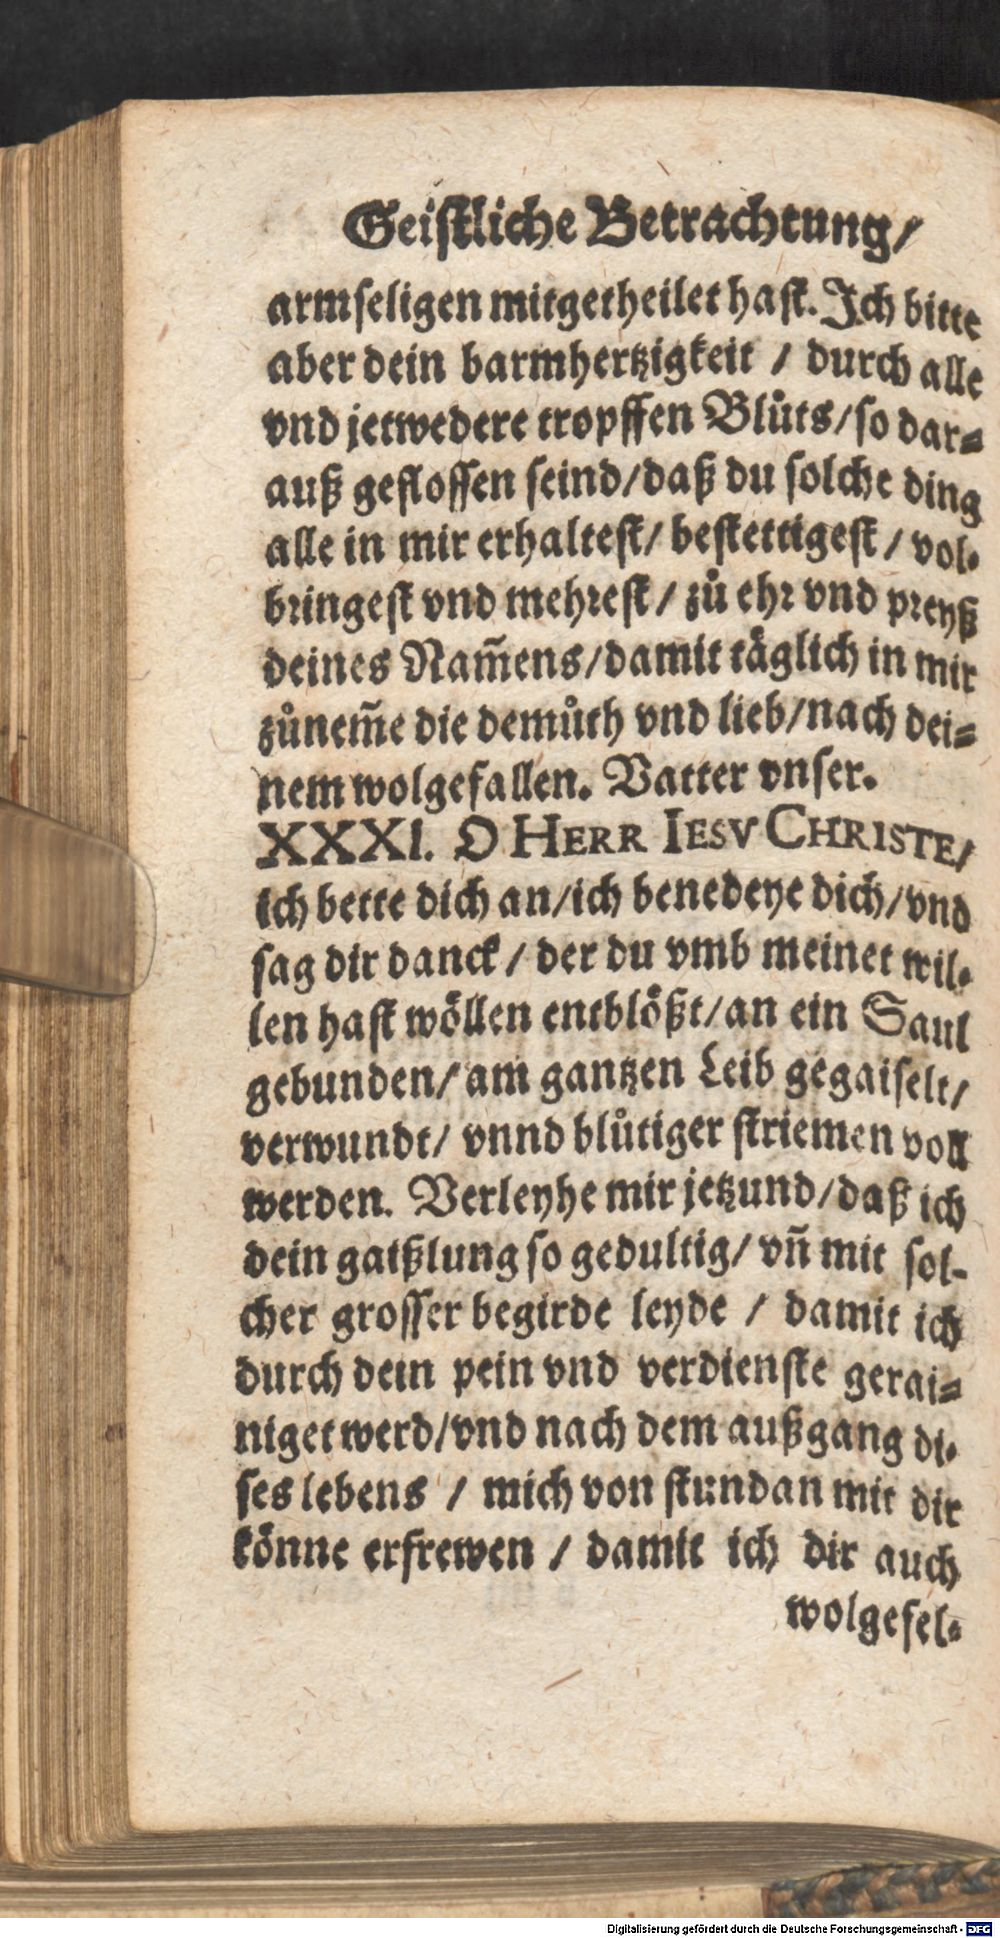 Geistliche Betrachtung/
armseligen mitgetheilet hast. Ich bitte
aber dein barmhertzigkeit / durch alle
vnd jetwedere tropffen Blůts/so dar-
auß geflossen seind/daß du solche ding
alle in mir erhaltest/ bestettigest / vol-
bringest vnd mehrest / zů ehr vnd preyß
deines Nam̃ens/damit täglich in mir
zůnem̃e die demůth vnd lieb/nach dei-
nem wolgefallen. Vatter vnser.
XXXI. O HERR IESV CHRISTE/
ich bette dich an/ich benedeye dich/vnd
sag dir danck / der du vmb meinet wil-
len hast wöllen entblößt/an ein Saul
gebunden/ am gantzen Leib gegaiselt/
verwundt/ vnnd blůtiger striemen voll
werden. Verleyhe mir jetzund/daß ich
dein gaißlung so gedultig/ vñ mit sol-
cher grosser begirde leyde / damit ich
durch dein pein vnd verdienste gerai-
niget werd/vnd nach dem außgang di-
ses lebens / mich von stundan mit dir
könne erfrewen / damit ich dir auch
wolgefel-
Digitalisierung gefördert durch die Deutsche Forschungsgemeinschaft - DFG